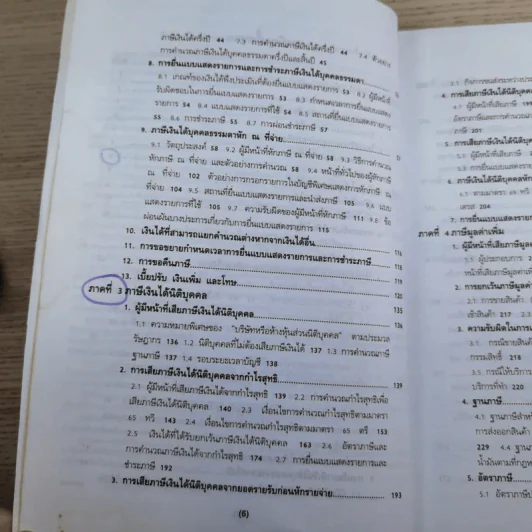 ภาษีเงินได้ครึ่งปี 44 7.3 การคำนวณภาษีเงินได้ครึ่งปี 44 7.4 ตัวอย่าง
การคำนวณภาษีเงินได้บุคคลธรรมดาครึ่งปีและสิ้นปี 45
8. การยื่นแบบแสดงรายการและการชำระภาษีเงินได้บุคคลธรรมดา
8.1 เกณฑ์ของเงินได้พึงประเมินที่ต้องยื่นแบบแสดงรายการ 53 8.2 ผู้มีหน้าที่
รับผิดชอบในการยื่นแบบแสดงรายการ 53 8.3 กำหนดเวลาการยื่นแบบแสดง
รายการ 54 8.4 แบบแสดงรายการที่ใช้ 54 8.5 สถานที่ยื่นแบบแสดงรายการ
55 8.6 การชำระภาษี 55 8.7 การผ่อนชำระภาษี 57
9. ภาษีเงินได้บุคคลธรรมดาหัก ณ ที่จ่าย
9.1 วัตถุประสงค์ 58 9.2 ผู้มีหน้าที่หักภาษี ณ ที่จ่าย 58 9.3 วิธีการคำนวณ
หักภาษี ณ ที่จ่าย และตัวอย่างการคำนวณ 58 9.4 หน้าที่ทั่วไปของผู้หักภาษี
ณ ที่จ่าย 102 ตัวอย่างการกรอกรายการในบัญชีพิเศษแสดงการหักภาษี ณ
ที่จ่าย 104 9.5 สถานที่ยื่นแบบแสดงรายการและนำส่งภาษี 105 9.6 แบบ
แสดงรายการที่ใช้ 105 9.7 ความรับผิดของผู้มีหน้าที่หักภาษี 111 9.8 ข้อ
ผ่อนผันบางประการเกี่ยวกับการยื่นแบบแสดงรายการ 115
10. เงินได้ที่สามารถแยกคำนวณต่างหากจากเงินได้อื่น 116
11. การขอขยายกำหนดเวลาการยื่นแบบแสดงรายการและการชำระภาษี
12. การขอคืนภาษี 118
13. เบี้ยปรับ เงินเพิ่ม และโทษ 120
ภาคที่ 3 ภาษีเงินได้นิติบุคคล 135
1. ผู้มีหน้าที่เสียภาษีเงินได้นิติบุคคล 136
1.1 ความหมายพิเศษของ "บริษัทหรือห้างหุ้นส่วนนิติบุคคล" ตามประมวล
รัษฎากร 136 1.2 นิติบุคคลที่ไม่ต้องเสียภาษีเงินได้ 137 1.3 การคำนวณภาษี
ฐานภาษี 137 1.4 รอบระยะเวลาบัญชี 138
2. การเสียภาษีเงินได้นิติบุคคลจากกำไรสุทธิ 139
2.1 ผู้มีหน้าที่เสียภาษีจากกำไรสุทธิ 139 2.2 การคำนวณกำไรสุทธิเพื่อ
เสียภาษีเงินได้นิติบุคคล 140 2.3 เงื่อนไขการคำนวณกำไรสุทธิตามมาตรา
65 ทวิ 143 2.4 เงื่อนไขการคำนวณกำไรสุทธิตามมาตรา 65 ตรี 153
2.5 เงินได้ที่ได้รับยกเว้นภาษีเงินได้นิติบุคคล 163 2.6 อัตราภาษีและ
การคำนวณภาษีเงินได้จากกำไรสุทธิ 174 2.7 การยื่นแบบแสดงรายการและ
ชำระภาษี 192
3. การเสียภาษีเงินได้นิติบุคคลจากยอดรายรับก่อนหักรายจ่าย 193
(6)
4. การเสียภาษีเงินได้นิติบุคคล
4.1 ผู้มีหน้าที่เสียภาษี
อัตราภาษีและการคำนวณ
ภาษี 205
5. การเสียภาษีเงินได้นิติบุคคล
5.1 ผู้มีหน้าที่เสียภาษี
6. ภาษีเงินได้นิติบุคคลหัก
7. การยื่นแบบแสดงรายการ
ภาคที่ 4 ภาษีมูลค่าเพิ่ม
1. ผู้มีหน้าที่เสียภาษีมูล
2. การยกเว้นภาษีมูลค่าเพิ่ม
2.1 การขายสินค้า
สินค้า 217
3. ความรับผิดในการ
กรรมสิทธิ์ 218
บริการที่ทำ 220
4. ฐานภาษี
การส่งออกสินค้า
229 4.4 ฐาน
5. อัตราภาษี